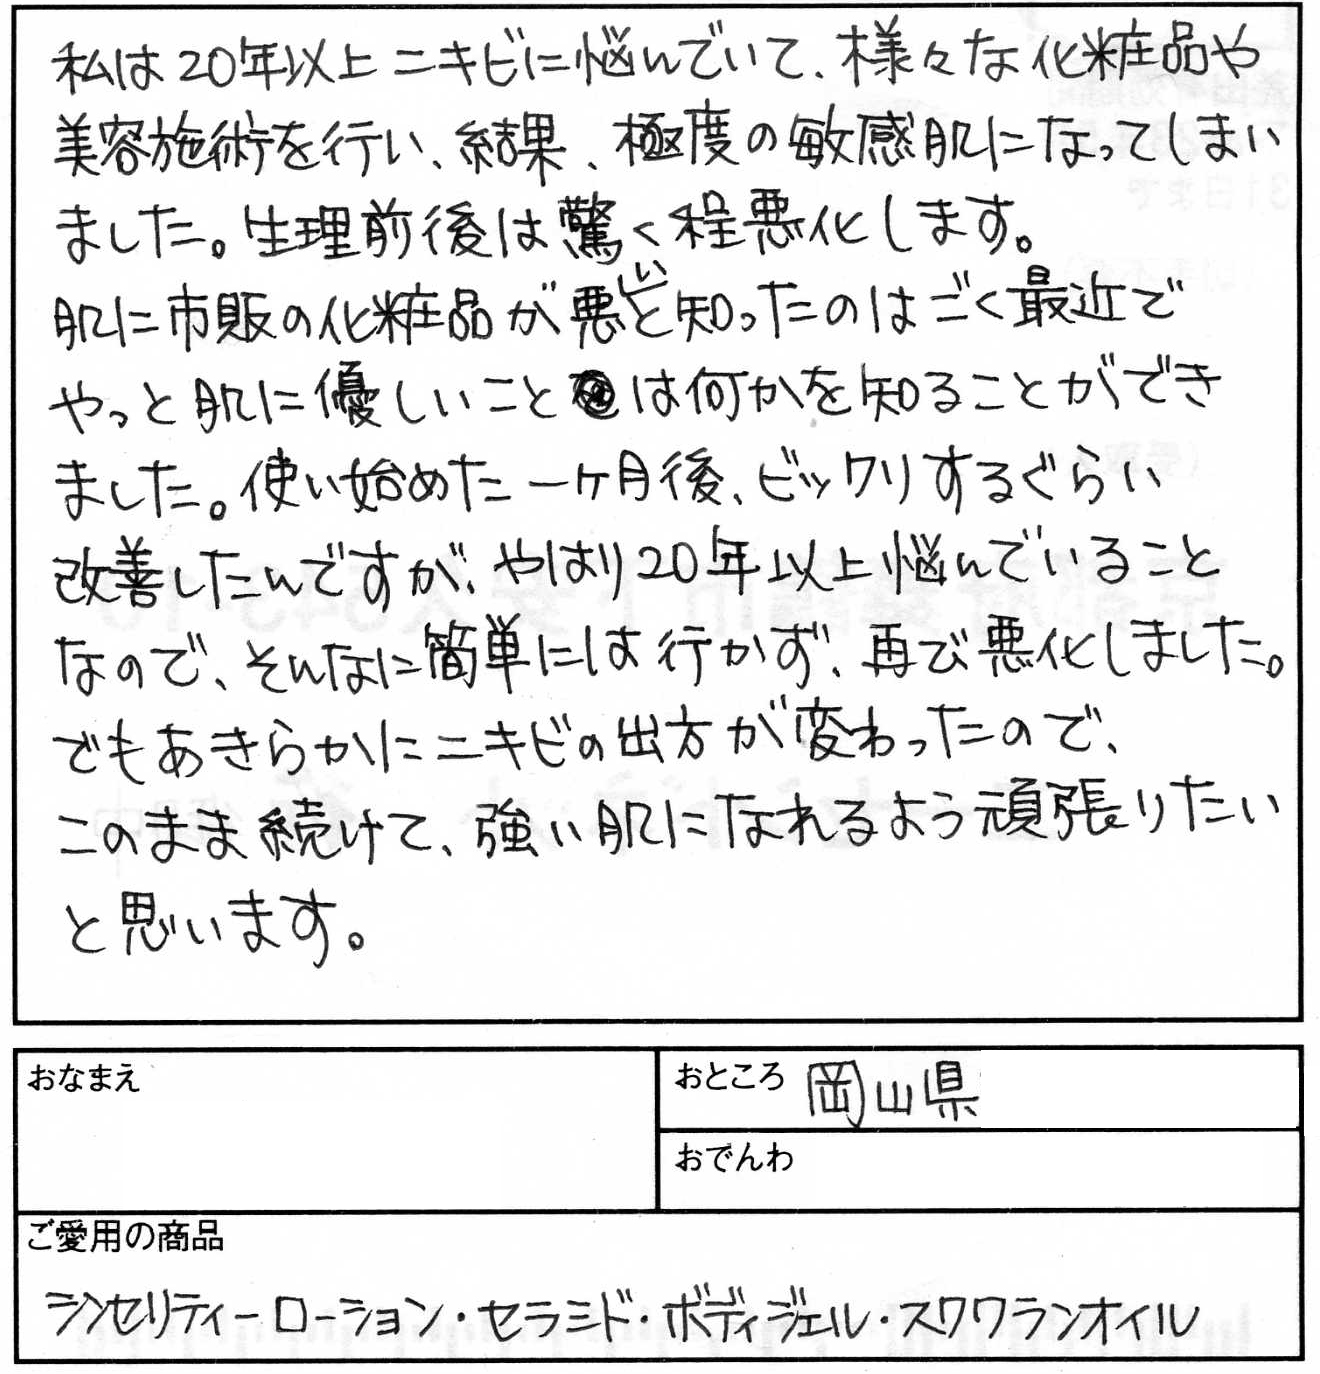 私は20年以上ニキビに悩んでいて、様々な化粧品や
美容施術を行い、結果、極度の敏感肌になってしまい
ました。生理前後は驚く程悪化します。
肌に市販の化粧品が悪いと知ったのはごく最近で
やっと肌に優しいことは何かを知ることができ
ました。使い始めた一ヶ月後、ビックリするぐらい
改善したんですが、やはり20年以上悩んでいること
なので、そんなに簡単には行かず、再び悪化しました。
でもあきらかにニキビの出方が変わったので、
このまま続けて、強い肌になれるよう頑張りたい
と思います。
おなまえ
おところ 岡山県
おでんわ
ご愛用の商品
シンセリティーローション・セラミド・ボディジェル・スクワランオイル